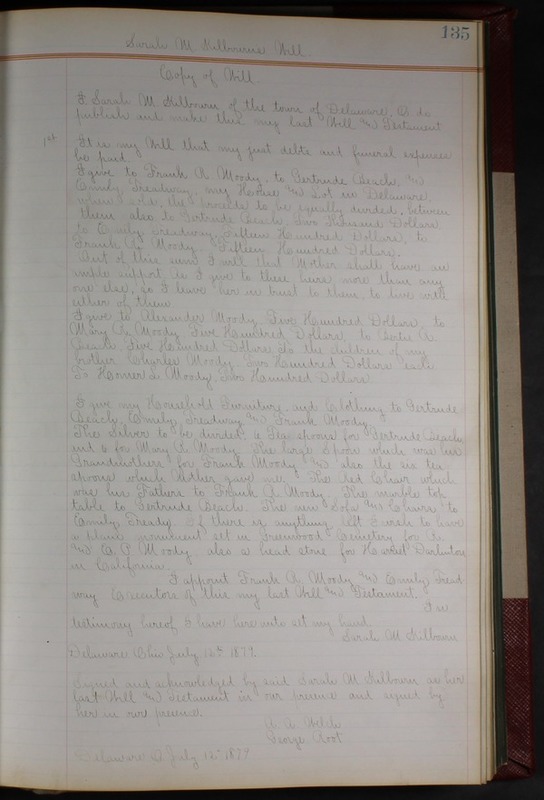 135
Sarah M Kilbourne Will
Copy of Will
I Sarah M Kilbourn of the town of Delaware, O do
publish and make this my last Will and Testament
1st It is my Will that my just debts and funeral expenses
be paid.
I give to Frank A Moody, to Gertrude Beach, and
Emily Treadway, my House and Lot in Delaware,
when sold, the proceeds to be equally divided, between
them also to Gertrude Beach Two thousand Dollars
to Emily Treadway Fifteen Hundred Dollars, to
Frank A. Moody Fifteen Hundred Dollars.
Out of this sum I will that Mother shall have an
ample support As I give to these heirs more than any
one else, so I leave her in trust to them, to live with
either of them.
I give to Alexander Moody Five Hundred Dollars, to
Mary A. Moody Five Hundred Dollars, to A.
Beach Five Hundred Dollars, to the children of my
brother Charles Moody, Two Hundred Dollars each
To Homer L Moody Two Hundred Dollars
I give my Household Furniture and Clothing to Gertrude
Beach, Emily Treadway and Frank Moody
The Silver to be divided, 6 Tea spoons for Gertrude Beach
and 6 for Mary A Moody The large Spoon which was her
Grandmothers for Frank Moody and also the six tea
spoons which Mother gave me. The Red Chair which
was his Fathers to Frank A. Moody The marble top
table to Gertrude Beach. The new Sofa and Chairs to
Emily Tready If there is anything left I wish to have
a plain monument set in Greenwood Cemetery for A.
and C. P Moody also a head stone for Harriet Darlinton
in California.
I appoint Frank A Moody and Emily Tread
way Executors of this my last Will and Testament.
In
testimony hereof I have here unto set my hand.
Sarah M Kilbourn
Delaware Ohio July 12th 1879.
Signed and acknowledged by said Sarah M Kilbourn as her
last Will and Testament in our presence and signed by
her in our presence.
A. A. Welch
George Root
Delaware O July 12th 1879